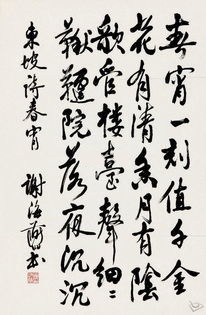 春宵一刻值千金
花有清香月有陰
歌管樓臺聲細細
鞦韆院落夜沉沉
東坡詩春宵
謝海